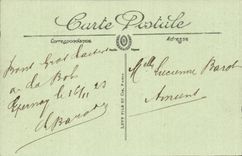 Carte Postale
Correspondance
Adresse
Bons
a La Bob
Epernay le 16/11 23
Ch Barot
Melle Lucienne Barot
Amiens
LEVY FILS ET Cie, PARIS